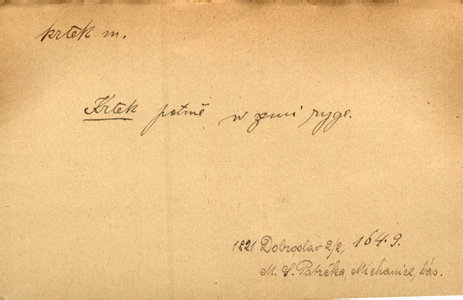 krtek m.
Krtek potmě w zemi ryge.
1821 Dobroslav 2/2, 164.9.
M. S. Patrčka, Míchanice, bás.